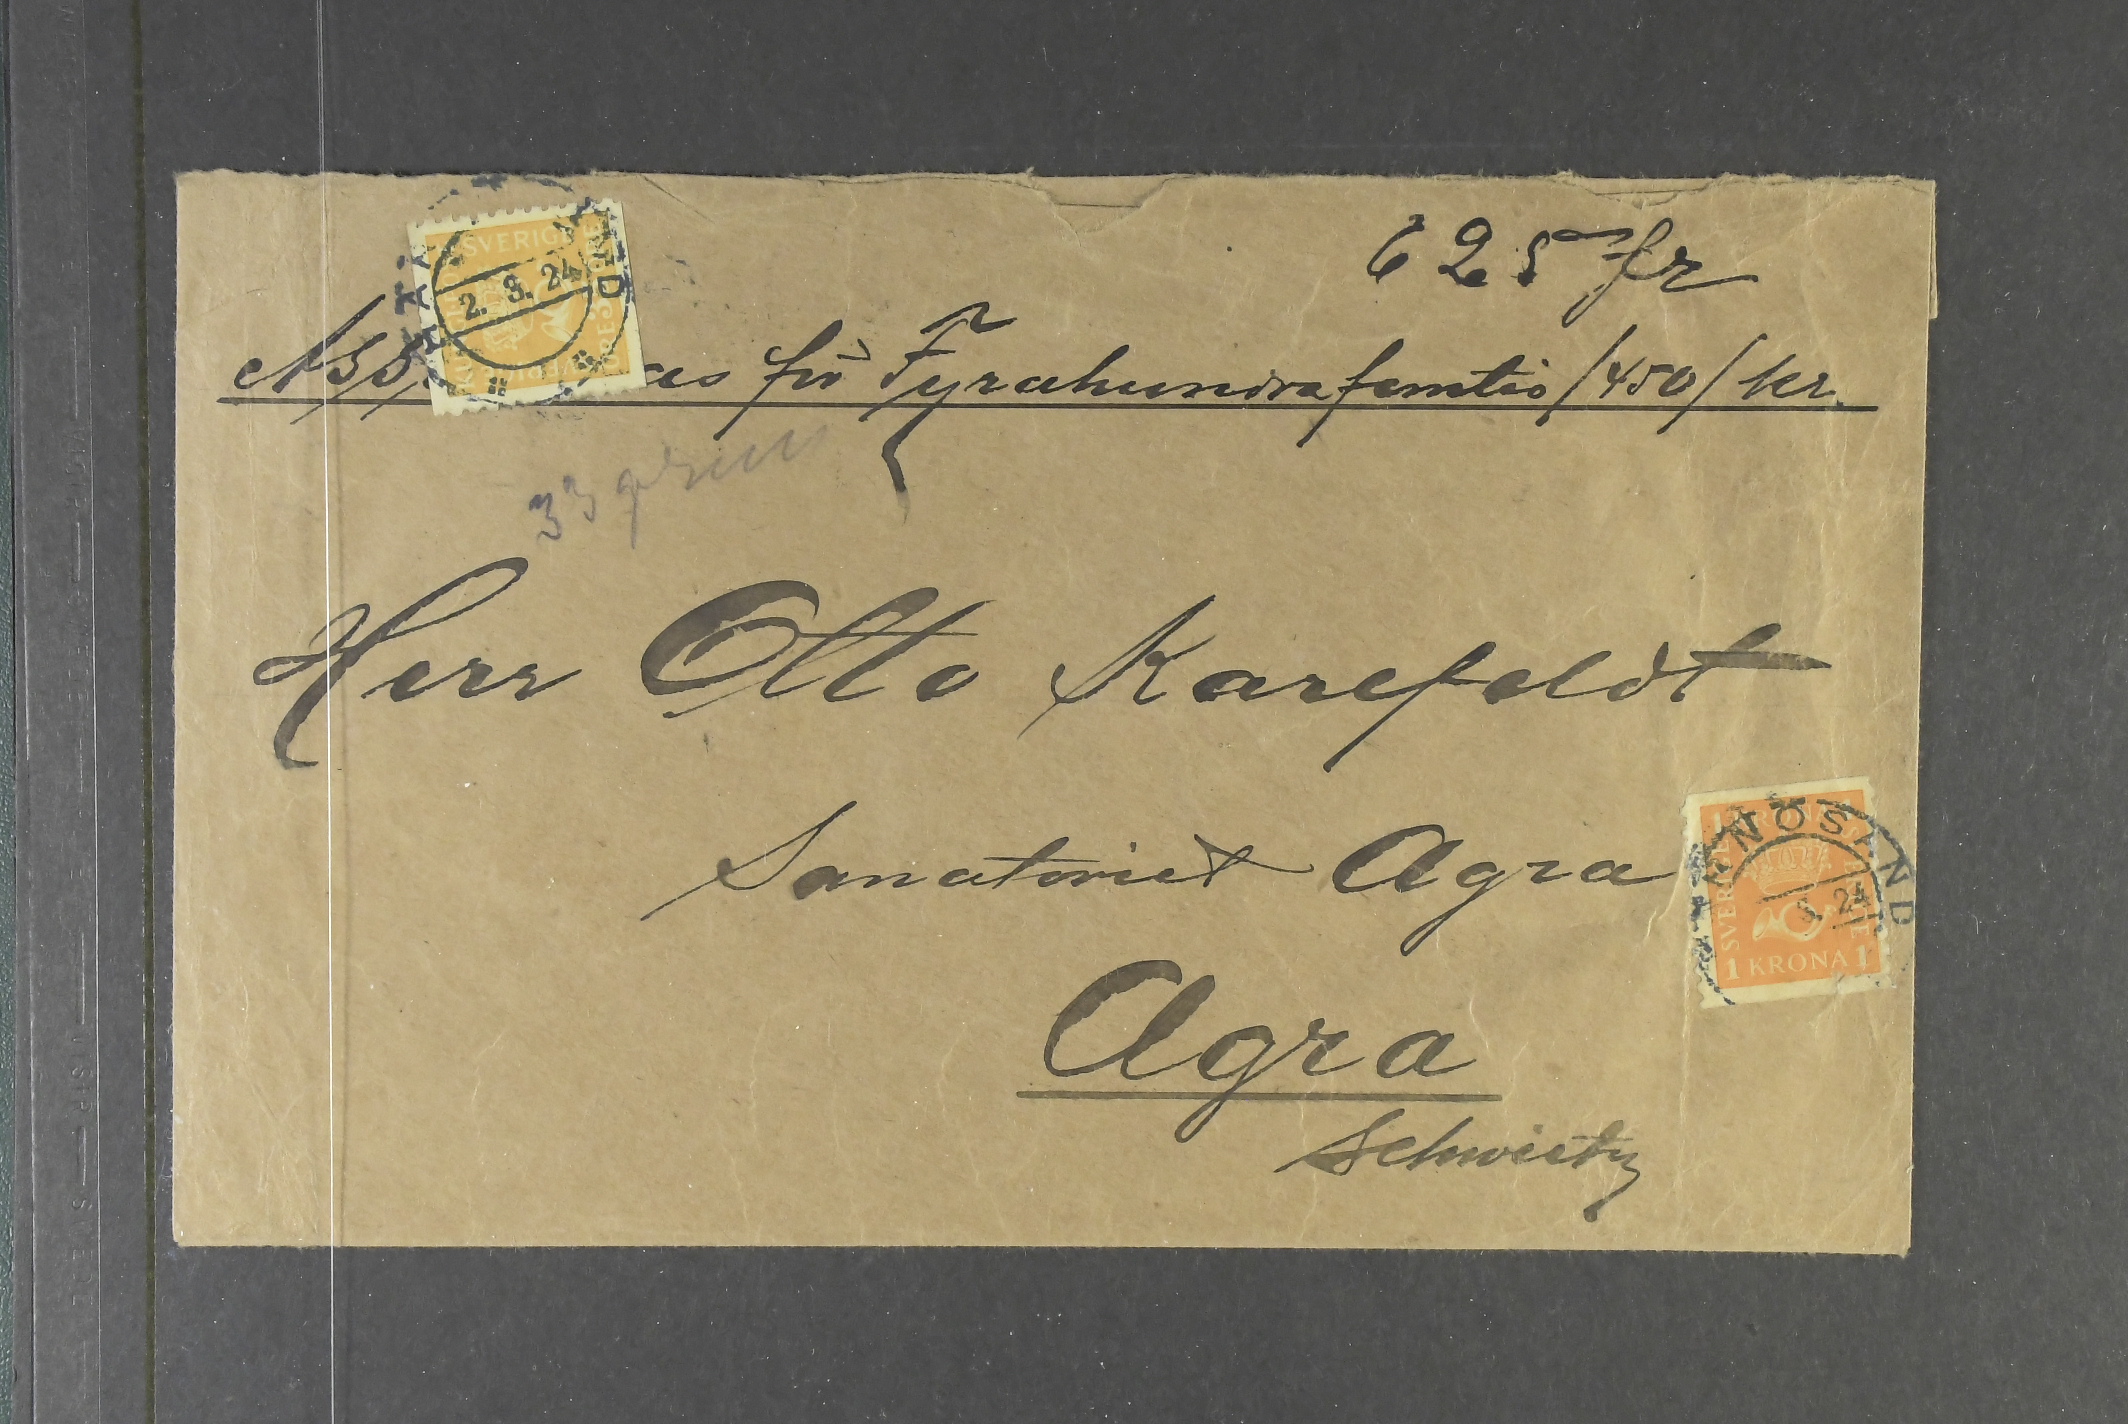 625 fr
as för Fyrahundrafemtio /450/ kr.
33 gram
Herr Otto Karlfeldt
Sanatoriet Agra
Agra
Schweitz
SVERIGE
2. 3. 24
HÄRNÖSAND
3. 24
SVERIGE
1 KRONA 1